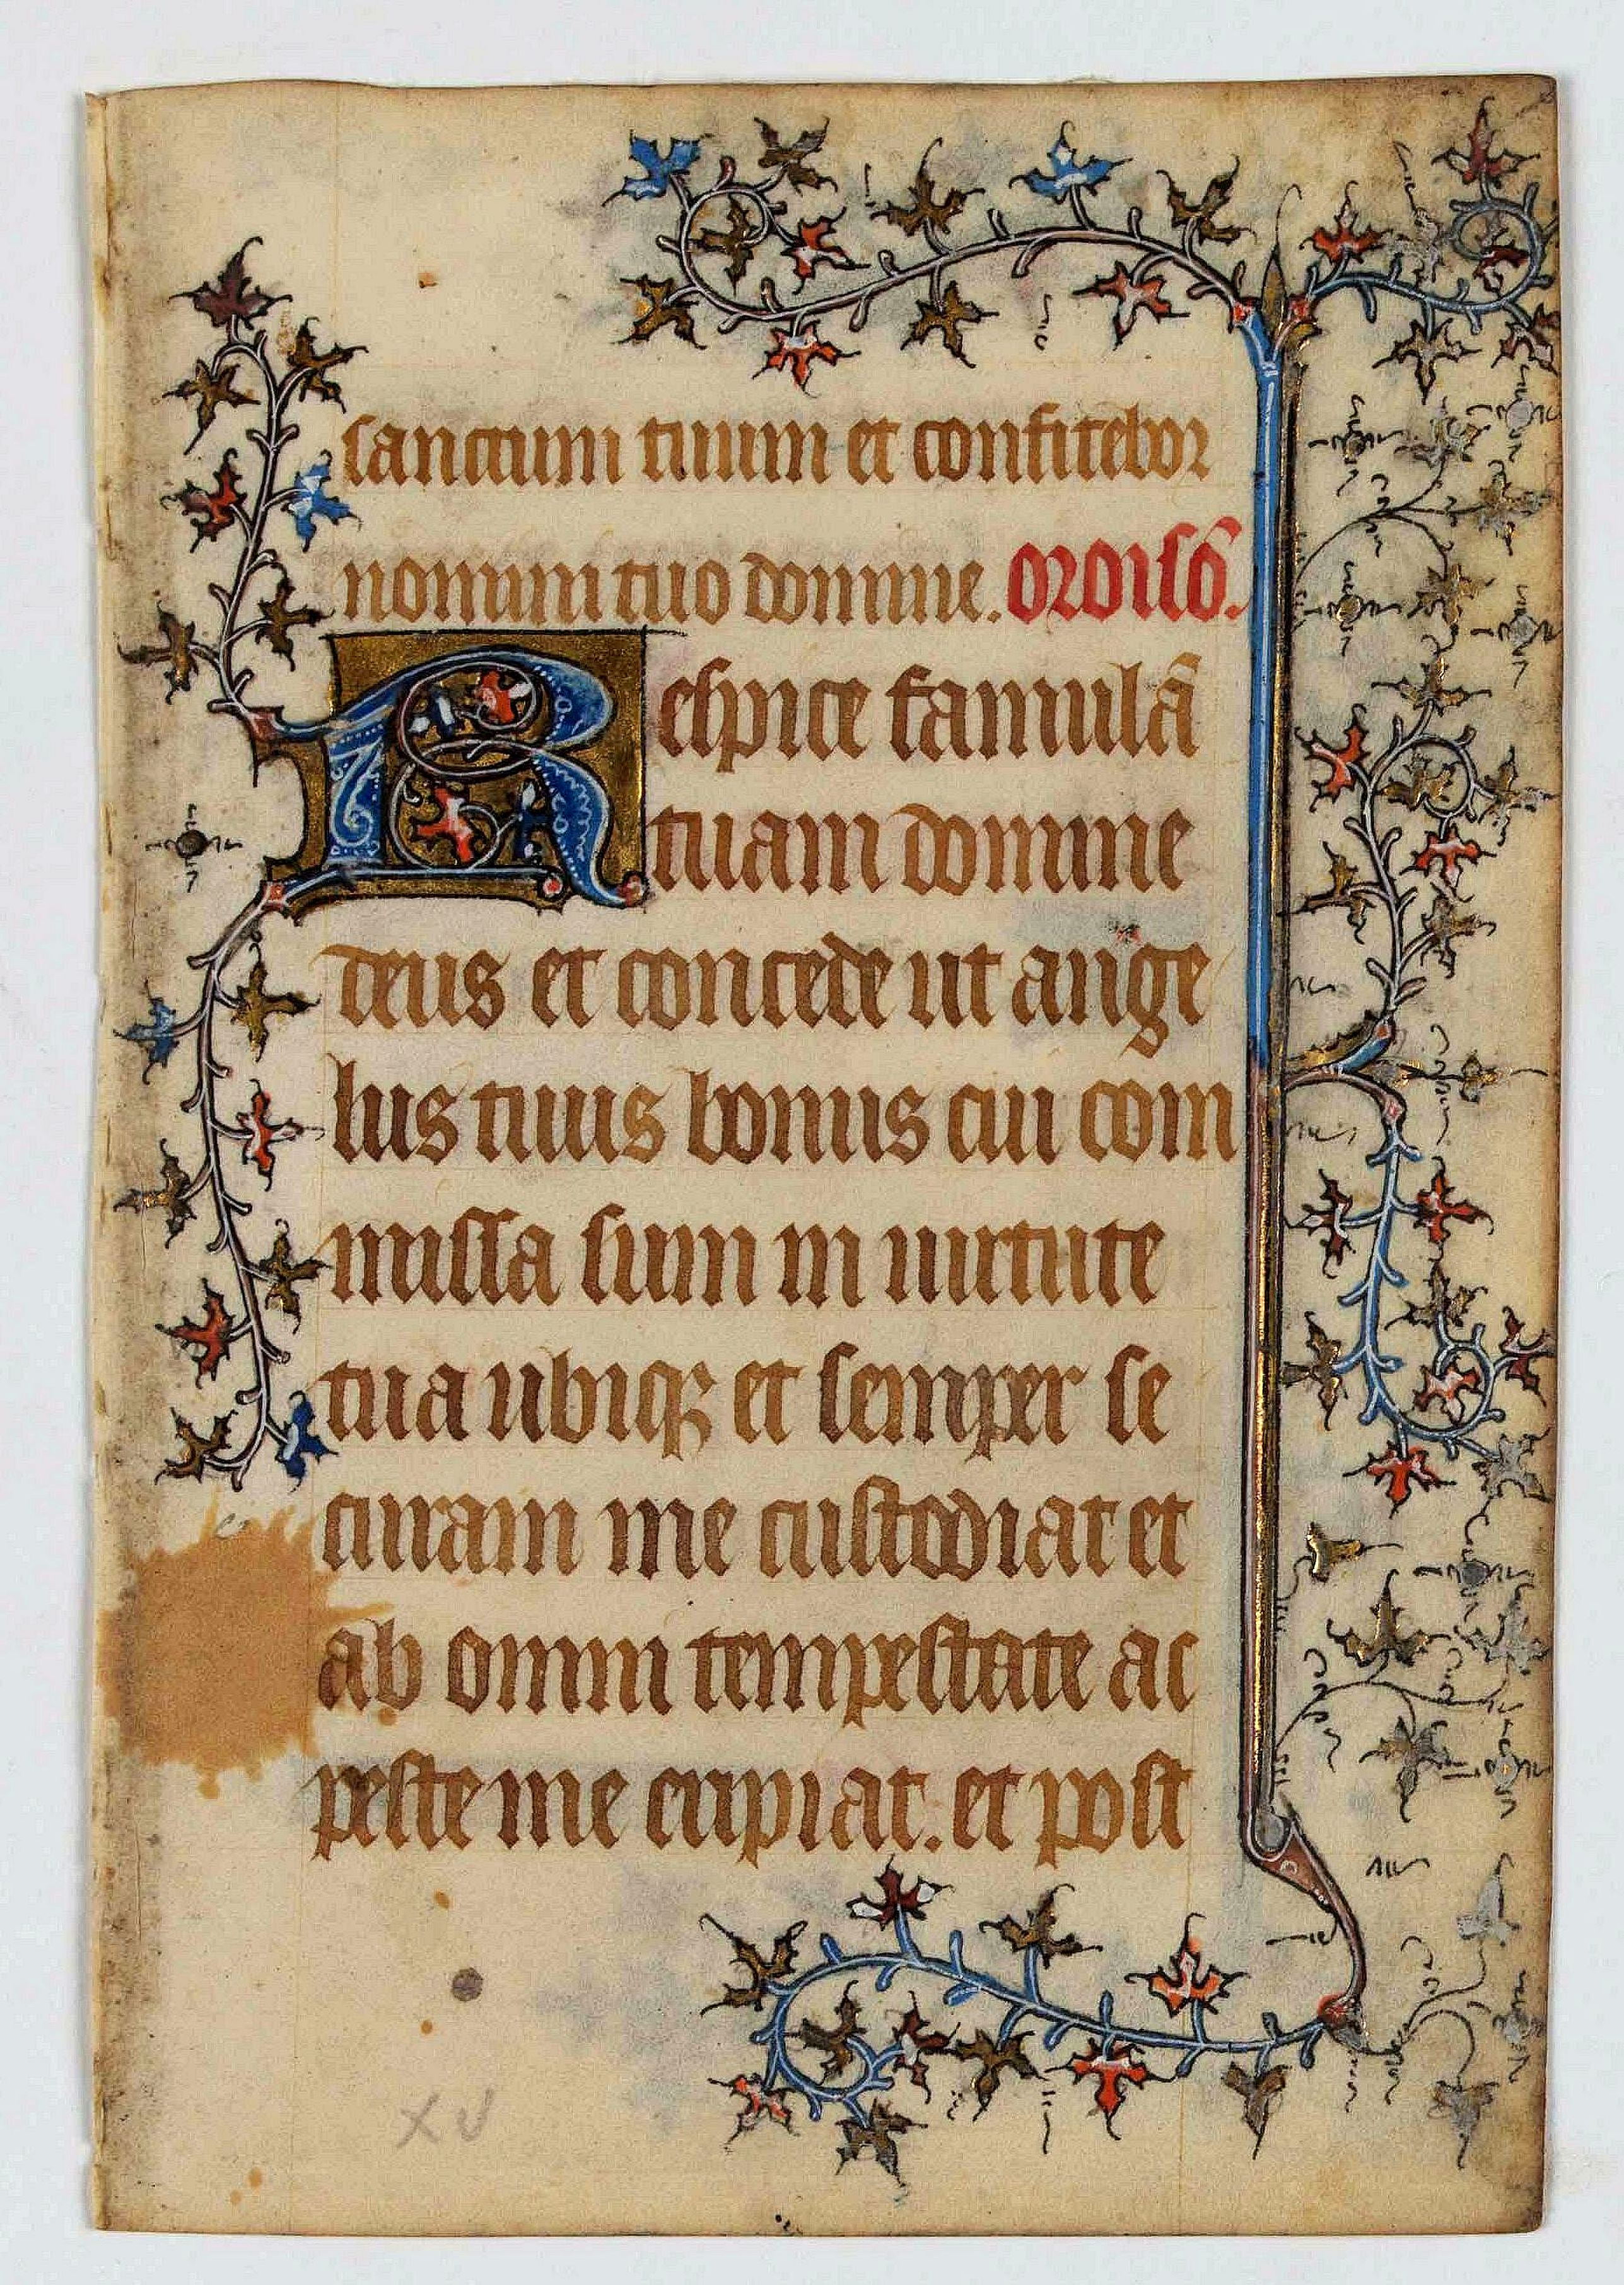 sanctum tuum et confitebor
nomini tuo domine. oroisō.
Respice famulā
tuam domine
deus et concede ut ange
lus tuus bonus cui com
missa sum in uirtute
tua ubiqꝫ et semper se
curam me custodiat et
ab omni tempestate ac
peste me eripiat. et post
xv